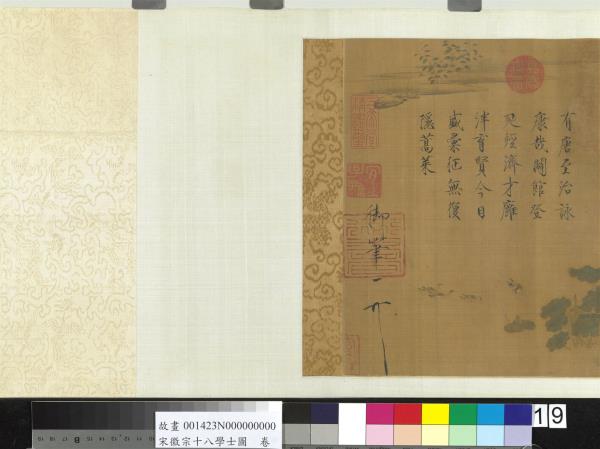 有唐至治詠
康哉闢館登
延經濟才廱
泮育賢今日
盛彙征無復
隱蒿萊
御筆
故畫 001423N000000000
宋徽宗十八學士圖 卷
19